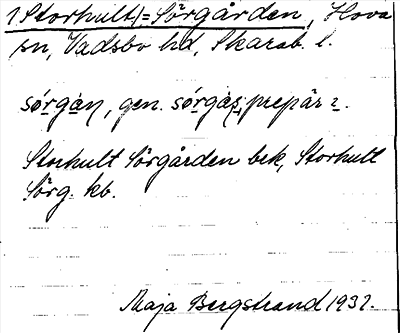 1 Storhult)=Sörgården, Hova
sn, Vadsbo hd, Skarab. l.
sórgàn, gen. sórgàs, prepår 2.
Storhult Sörgården bek, Storhult
Sörg. kb.
Maja Bergstrand 1932.